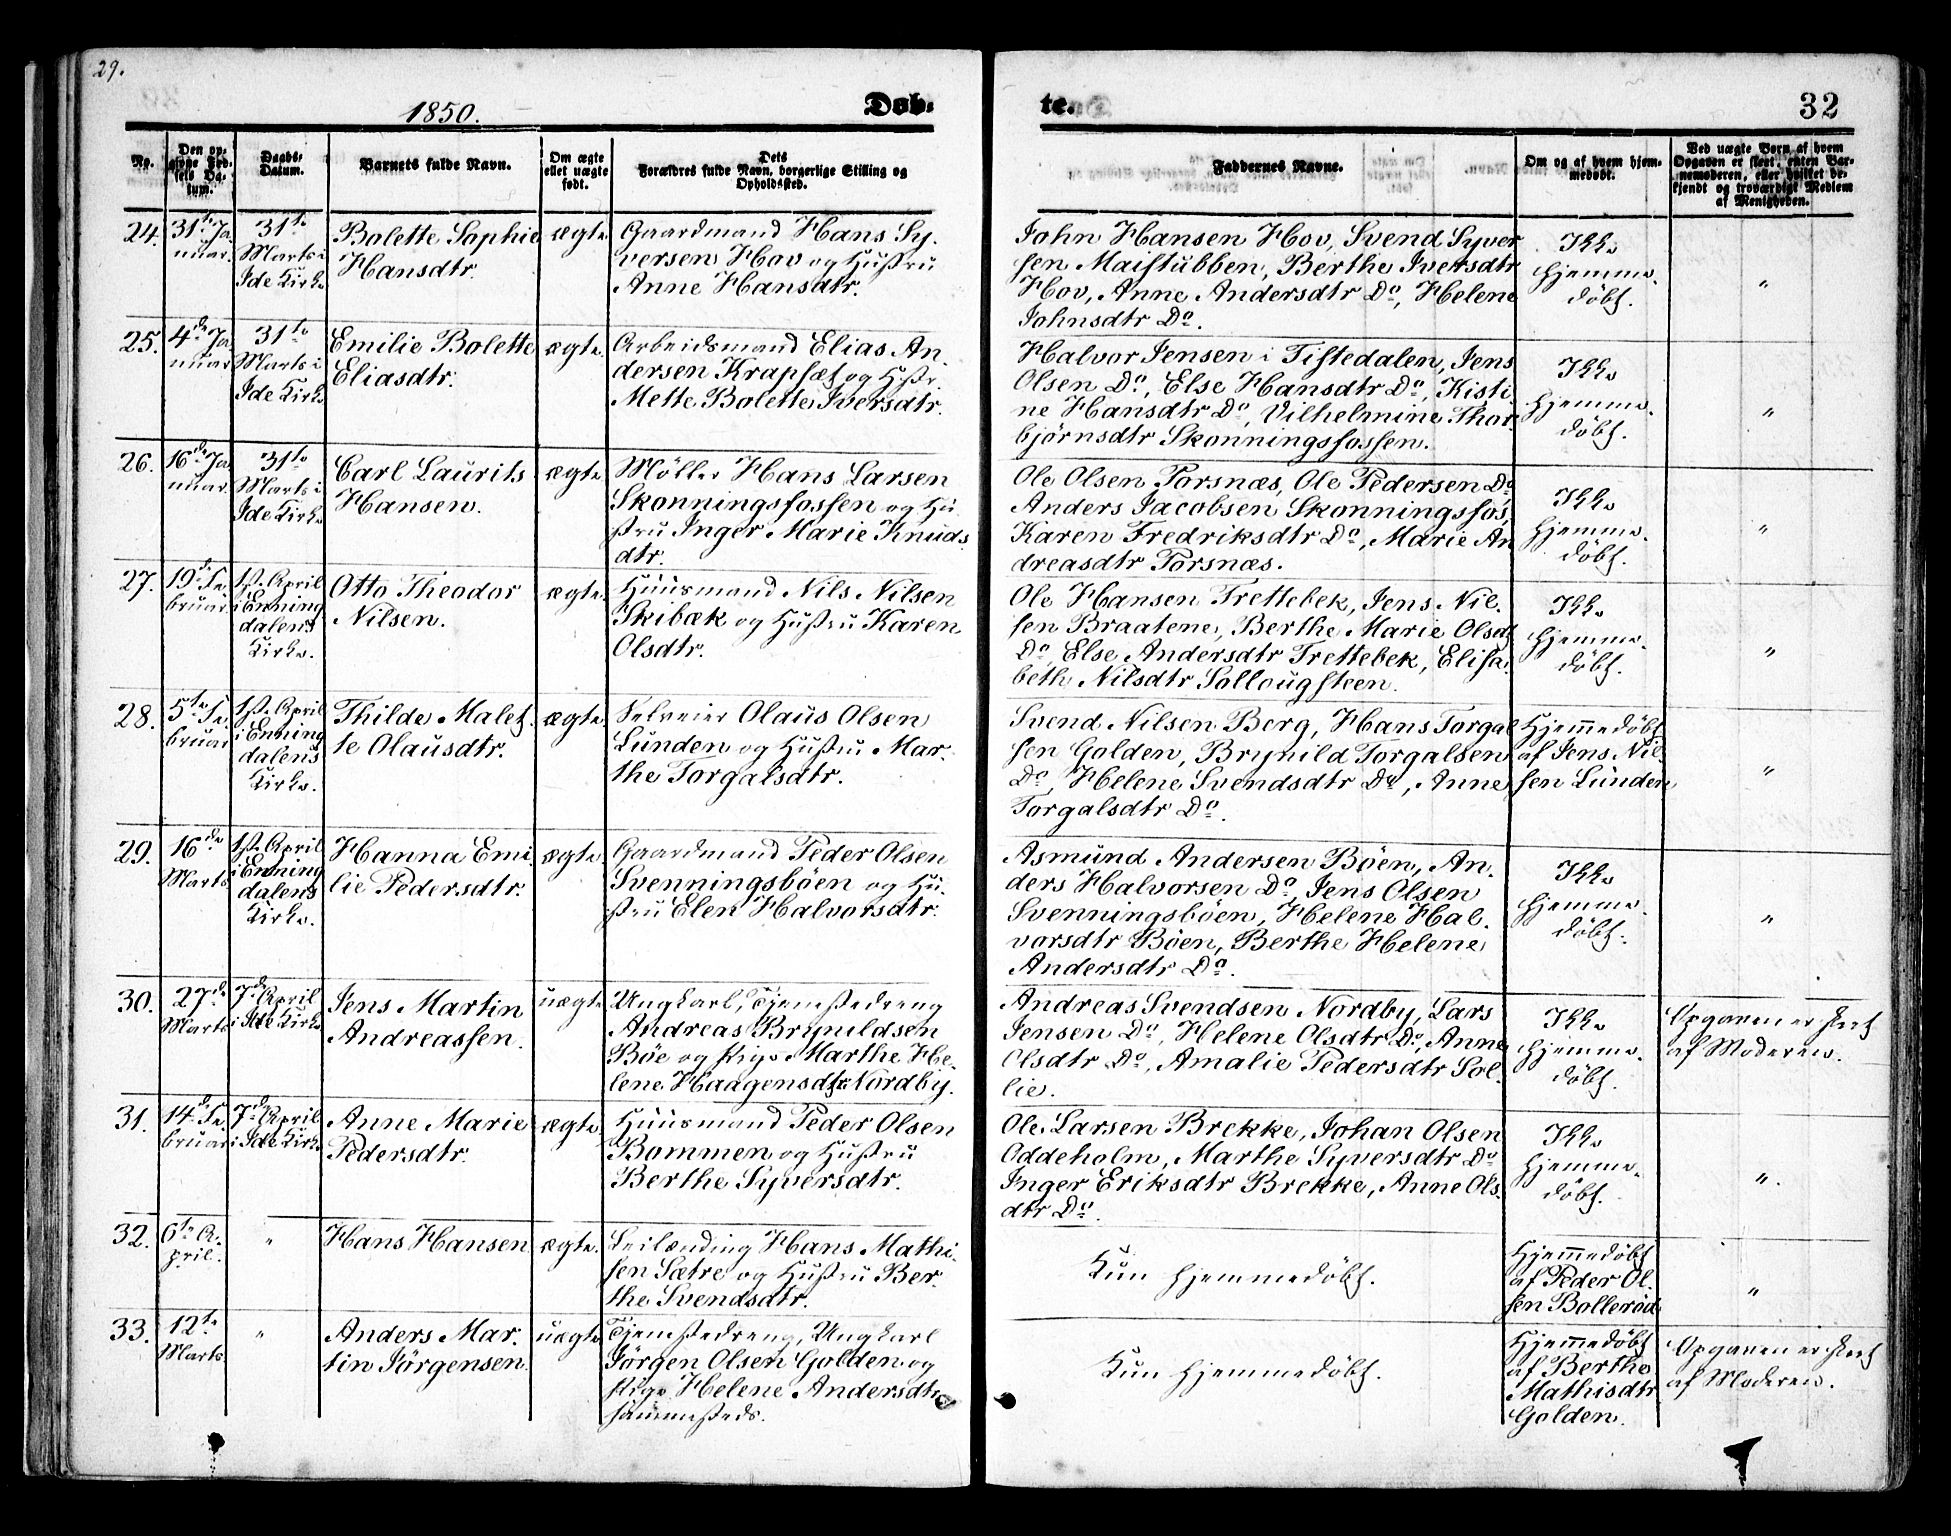 29.
1850.
Døb-
te.
32
No.
Den op-
givne Fød-
sels Da-
tum.
Daabs-
Datum.
Barnets fulde Navn.
Om ægte
eller uægte
født.
Dets
Forældres fulde Navn, borgerlige Stilling og
Opholdssted.
Faddernes Navne.
Om og af hvem hjem-
medøbt.
Ved uægte Børn af hvem
Opgaven er skeet, enten Bar-
nemoderen, eller hvilket be-
kjendt og troværdigt Medlem
af Menigheden.
24.
31te Ja
nuar.
31te
Marts i
Ide Kirke
Bolette Sophie
Hansdtr.
ægte
Gaardmand Hans Sy-
versen Hov og Hustru
Anne Hansdtr.
John Hansen Hov, Svend Syver
sen Maistubben, Berthe Iversdtr
Hov, Anne Andersdtr Do, Helene
Johnsdtr Do.
Ikke
hjemme-
døbt.
"
25.
4de Ja
nuar
31te
Marts i
Ide Kirke
Emilie Bolette
Eliasdtr.
ægte
Arbeidsmand Elias An-
dersen Krapsæt og Hstr.
Mette Bolette Iversdtr.
Halvor Jensen i Tistedalen, Jens
Olsen Do, Else Hansdtr Do, Kisti-
ne Hansdtr Do, Vilhelmine Thor-
bjørnsdtr Skonningsfossen.
Ikke
hjemme-
døbt.
"
26.
16de Ja
nuar.
31te
Marts i
Ide Kirke
Carl Laurits
Hansen.
ægte
Møller Hans Larsen
Skonningsfossen og Hu-
stru Inger Marie Knuds
dtr.
Ole Olsen Torsnæs, Ole Pedersen Do
Anders Jacobsen Skonningsfos,
Karen Fredriksdtr Do, Marie An
dreasdtr Torsnæs.
Ikke
hjemme-
døbt.
"
27.
19de Fe
bruar
1ste April
i Enning
dalens
Kirke.
Otto Theodor
Nilsen.
ægte.
Huusmand Nils Nilsen
Skibæk og Hustru Karen
Olsdtr.
Ole Hansen Trettebek, Jens Nil-
sen Braatene, Berthe Marie Olsdt
Do, Else Andersdtr Trettebek, Elisa-
beth Nilsdtr Sollougsteen.
Ikke
hjemme-
døbt.
"
28.
5te Fe-
bruar
1ste April
i Enning
dalens
Kirke.
Thilde Malet-
te Olausdtr.
ægte.
Selveier Olaus Olsen
Lunden og Hustru Mar-
the Torgalsdtr.
Svend Nilsen Berg, Hans Torgal
sen Golden, Brynild Torgalsen
Do, Helene Svendsdtr Do, Anne
Torgalsdtr Do.
Hjemmedøbt
af Jens Nil-
sen Lunden
"
29.
16de
Marts
1ste April
i Enning
dalens
Kirke.
Hanna Emi
lie Pedersdtr.
ægte
Gaardmand Peder Olsen
Svenningsbøen og Hu-
stru Elen Halvorsdtr.
Asmund Andersen Bøen, An-
ders Halvorsen Do, Jens Olsen
Svenningsbøen, Helene Hal-
vorsdtr Bøen, Berthe Helene
Andersdtr Do.
Ikke
hjemme-
døbt.
"
30.
27de
Marts
7de April
i Ide Kirke
Jens Martin
Andreassen.
uægte
Ungkarl, Tjenestedreng
Andreas Brynildsen
Bøe og Pige Marthe He-
lene Haagensdtr Nordby.
Andreas Svendsen Nordby, Lars
Jensen Do, Helene Olsdtr Do, Anne
Olsdtr Do, Amalie Pedersdtr Sol-
lie.
Ikke
hjemme-
døbt.
Opgaven er skeet
af Moderen.
31.
14de Fe-
bruar
7de April
i Ide Kirke
Anne Marie
Pedersdtr.
ægte
Huusmand Peder Olsen
Bommen og Hustru
Berthe Syversdtr.
Ole Larsen Brekke, Johan Olsen
Oddeholm, Marthe Syversdtr Do
Inger Eriksdtr Brekke, Anne Ols-
dtr Do.
Ikke
hjemme-
døbt.
"
32.
6te A-
pril.
"
Hans Hansen
ægte.
Leilænding Hans Mathi-
sen Sætre og Hustru Ber-
the Svendsdtr.
Kun hjemmedøbt.
Hjemmedøbt
af Peder Ol-
sen Bollerød
"
33.
12te
Marts
"
Anders Mar-
tin Jørgensen
uægte
Tjenestedreng, Ungkarl
Jørgen Olsen Golden og
Pige Helene Andersdtr
sammesteds.
Kun hjemmedøbt.
Hjemmedøbt
af Berthe
Mathisdtr
Golden.
Opgaven er skeet
af Moderen.